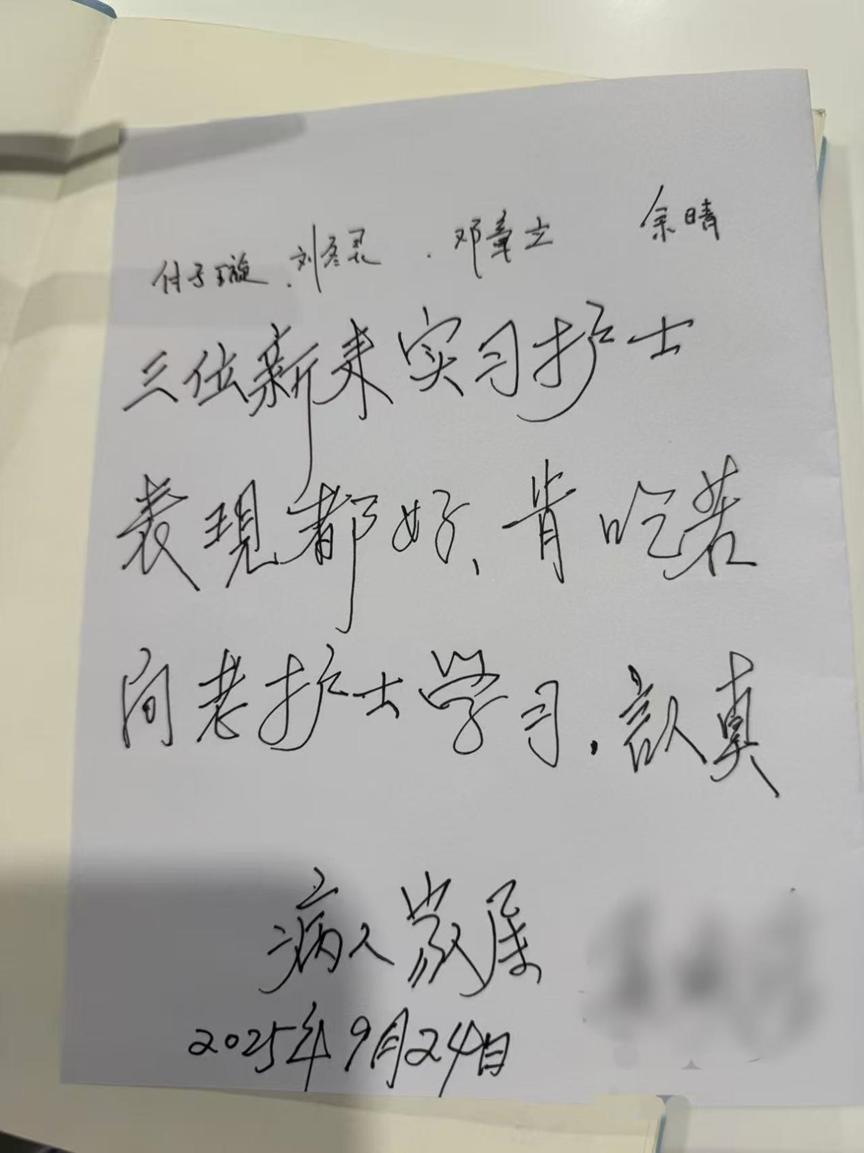 付子璇、刘冬灵、邓章立 余晴
三位新来实习护士
表现都好、肯吃苦
向老护士学习.认真
病人家属
2025年9月24日